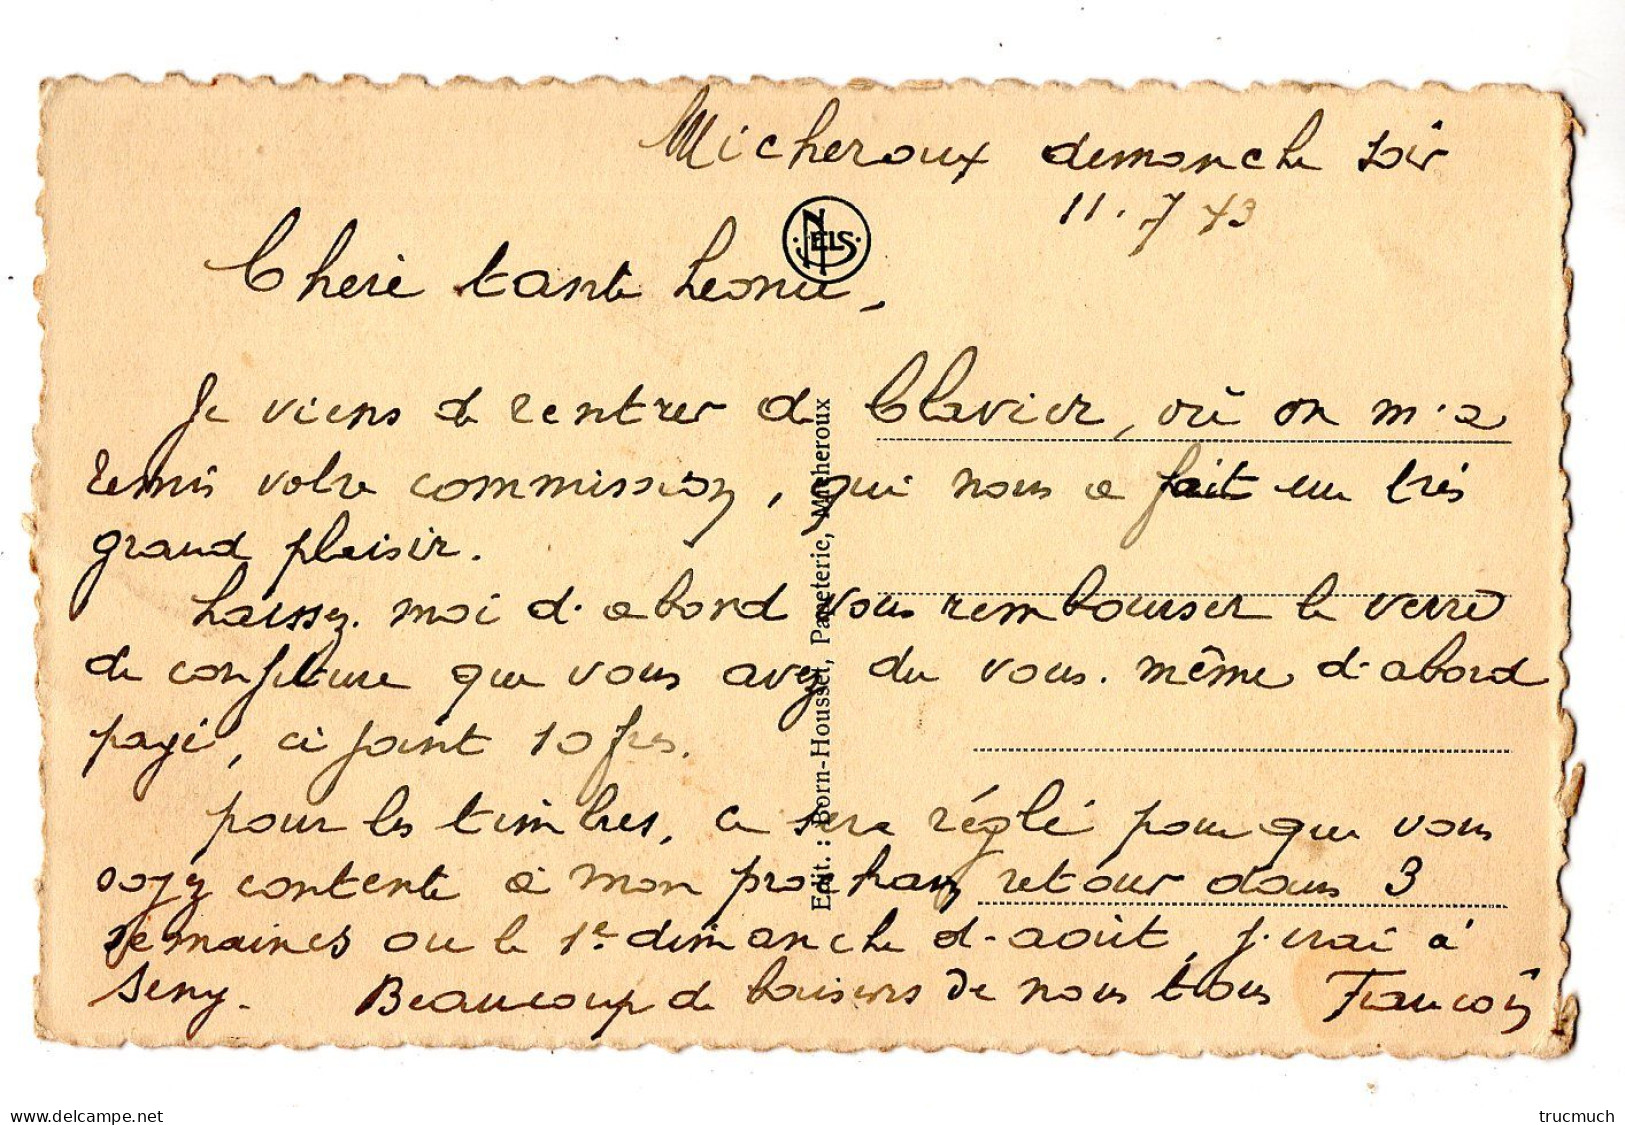 Micheroux dimanche soir
11.7 43
NELS
Chère tante Leonie,
Je viens de rentrer de Clavier, où on m'a
remis votre commission, qui nous a fait un très
grand plaisir.
Laissez-moi d'abord vous rembourser le verre
de confiture que vous avez du vous-même d'abord
payé, ci joint 10 frs.
pour les timbres, ce sera réglé pour que vous
soyez contente à mon prochain retour dans 3
semaines ou le 1er dimanche d'août, j'irai à
Seny. Beaucoup de baisers de nous tous François
Edit. : Born-Housset, Papeterie, Micheroux
www.delcampe.net
trucmuch